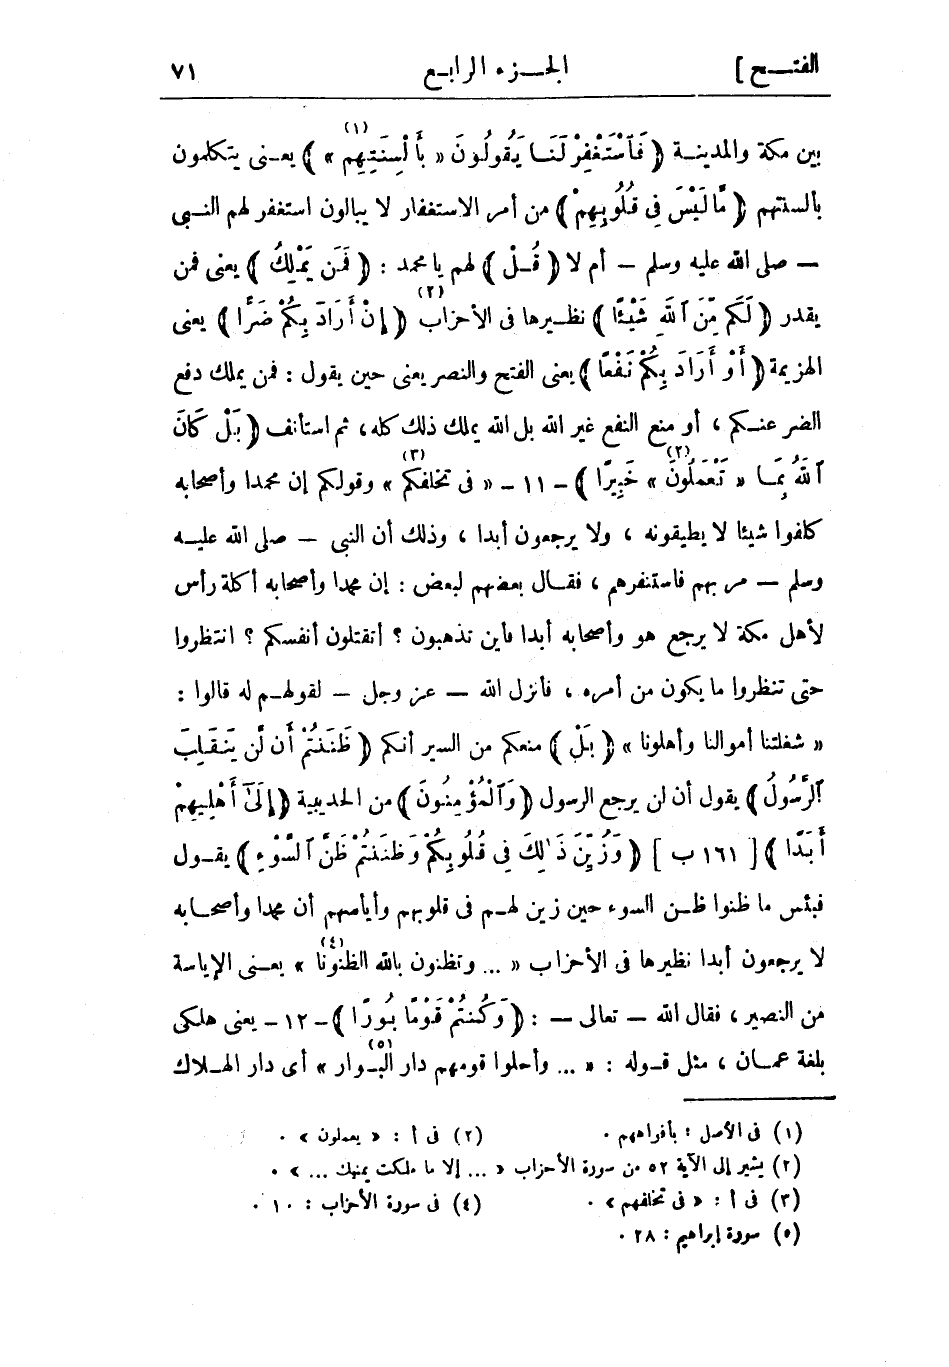 الفتـــح ]
الجـــزء الرابـع
٧١
بين مكة والمدينـــة ﴿ فَٱسْتَغْفِرْ لَنَـا يَقُولُونَ « بِأَلْسِنَتِهِم (١) » ﴾ يعـنى يتكلمون
بألسنتهم ﴿ مَّا لَيْسَ فِى قُلُوبِهِمْ ﴾ من أمر الاستغفار لا يبالون استغفر لهم النـبى
— صلى الله عليه وسلم — أم لا ﴿ قُـــلْ ﴾ لهم يا محمد : ﴿ فَمَن يَمْلِكُ ﴾ يعنى فمن
يقدر ﴿ لَكُم مِّنَ ٱللَّهِ شَيْئًا ﴾ نظــيرها فى الأحزاب (٢) ﴿ إِنْ أَرَادَ بِكُمْ ضَرًّا ﴾ يعنى
الهزيمة ﴿ أَوْ أَرَادَ بِكُمْ نَفْعًا ﴾ يعنى الفتح والنصر يعنى حين يقول : فمن يملك دفع
الضر عنــكم ، أو منع النفع غير الله بل الله يملك ذلك كله ، ثم استأنف ﴿ بَلْ كَانَ
ٱللَّهُ بِمَـــا « تَعْمَلُونَ (٢) » خَبِيرًا ﴾ – ١١ – « فى تخلفكم (٣) » وقولكم إن محمدا وأصحابه
كلفوا شيئا لا يطيقونه ، ولا يرجعون أبدا ، وذلك أن النبى — صلى الله عليــه
وسلم — مر بهم فاستنفرهم ، فقــال بعضهم لبعض : إن محمدا وأصحابه أكلة رأس
لأهل مكة لا يرجع هو وأصحابه أبدا فأين تذهبون ؟ أتقتلون أنفسكم ؟ انتظروا
حتى تنظروا ما يكون من أمره ، فأنزل الله — عز وجل — لقولهــم له قالوا :
« شغلتنا أموالنا وأهلونا » ﴿ بَلْ ﴾ منعكم من السير أنكم ﴿ ظَنَنتُمْ أَن لَّن يَنقَلِبَ
ٱلرَّسُولُ ﴾ يقول أن لن يرجع الرسول ﴿ وَٱلْمُؤْمِنُونَ ﴾ من الحديبية ﴿ إِلَىٰٓ أَهْلِيهِمْ
أَبَدًا ﴾ [ ١٦١ ب ] ﴿ وَزُيِّنَ ذَٰلِكَ فِى قُلُوبِكُمْ وَظَنَنتُمْ ظَنَّ ٱلسَّوْءِ ﴾ يقــول
فبئس ما ظنوا ظــن السوء حين زين لهــم فى قلوبهم وأيأسهم أن محمدا وأصحــابه
لا يرجعون أبدا نظيرها فى الأحزاب « ... وتظنون بالله الظنونا (٤) » يعــنى الإياسة
من النصير ، فقال الله — تعالى — : ﴿ وَكُنتُمْ قَوْمًا بُورًا ﴾ – ١٢ – يعنى هلكى
بلغة عمــان ، مثل قــوله : « ... وأحلوا قومهم دار البــوار (٥) » أى دار الهــلاك
(١) فى الأصل : بأفواههم .
(٢) فى أ : « يعملون » .
(٢) يشير إلى الآية ٥٢ من سورة الأحزاب « ... إلا ما ملكت يمينك ... » .
(٣) فى أ : « فى تخلفهم » .
(٤) فى سورة الأحزاب : ١٠ .
(٥) سورة إبراهيم : ٢٨ .